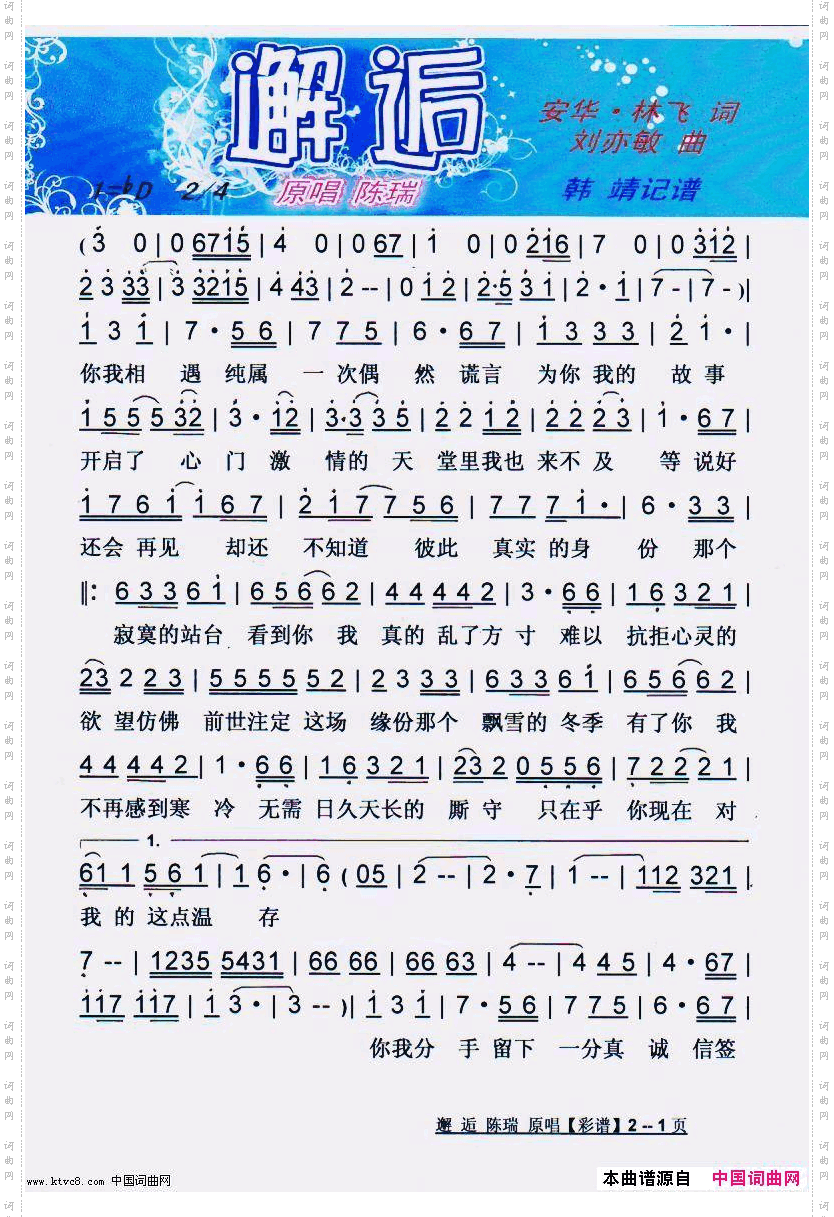 邂逅
安华·林飞 词
刘亦敏 曲
1=♭D 2/4 原唱 陈瑞 韩 靖记谱
( 3 0 | 0 6715 | 4 0 | 0 67 | 1 0 | 0 216 | 7 0 | 0 312 |
2 3 33 | 3 3215 | 4 43 | 2 -- | 0 1 2 | 2·5 3 1 | 2 · 1 | 7 - | 7 - )|
1 3 1 | 7 · 5 6 | 7 7 5 | 6 · 6 7 | 1 3 3 3 | 2 1 · |
你我相 遇 纯属 一 次偶 然 谎言 为你 我的 故 事
1 5 5 5 32 | 3 · 12 | 3·3 3 5 | 2 2 1 2 | 2 2 2 3 | 1 · 6 7 |
开启了 心 门 激 情的 天 堂里我也 来不 及 等 说好
1 7 6 1 | 1 6 7 | 2 1 7 | 7 5 6 | 7 7 7 1 · | 6 · 3 3 |
还会 再见 却还 不知道 彼此 真实 的身 份 那个
‖: 6 3 3 6 1 | 6 5 6 6 2 | 4 4 4 4 2 | 3 · 6 6 | 1 6 3 2 1 |
寂寞的站台 看到你 我 真的 乱了方 寸 难以 抗拒心灵的
23 2 2 3 | 5 5 5 5 5 2 | 2 3 3 3 | 6 3 3 6 1 | 6 5 6 6 2 |
欲 望仿佛 前世注定 这场 缘份那个 飘雪的 冬季 有了你 我
4 4 4 4 2 | 1 · 6 6 | 1 6 3 2 1 | 23 2 0 5 5 6 | 7 2 2 2 1 |
不再感到寒 冷 无需 日久天长的 厮 守 只在乎 你现在 对
1.
61 1 5 6 1 | 1 6 · | 6 ( 05 | 2 -- | 2 · 7 | 1 -- | 112 321 |
我 的 这点温 存
7 -- | 1235 5431 | 66 66 | 66 63 | 4 -- | 4 4 5 | 4 · 67 |
117 117 | 1 3 · | 3 -- )| 1 3 1 | 7 · 5 6 | 7 7 5 | 6 · 6 7 |
你我分 手 留下 一分真 诚 信签
邂 逅 陈瑞 原唱【彩谱】2 -- 1 页
www.ktvc8.com 中国词曲网
本曲谱源自 中国词曲网